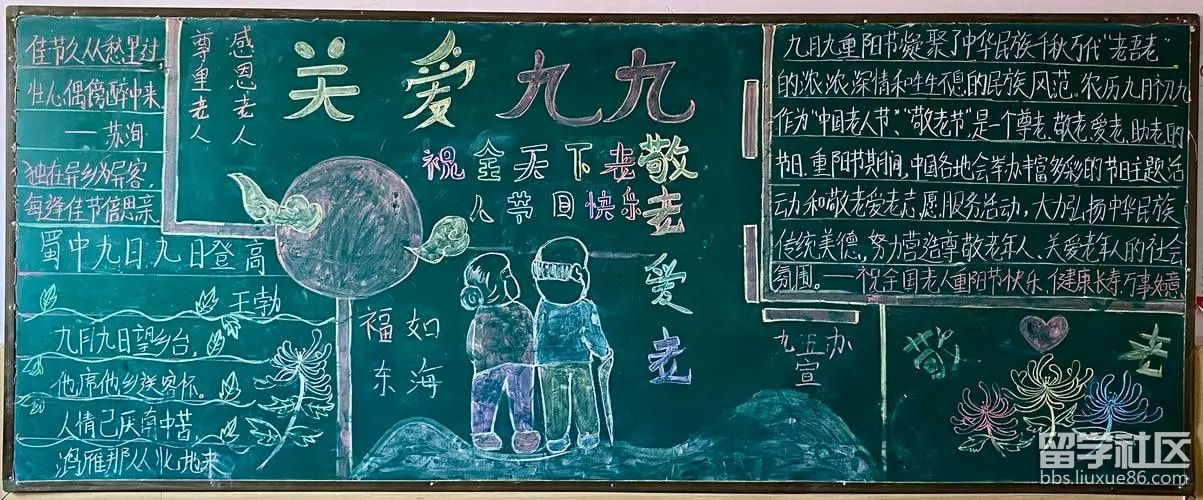 佳节久从愁里过,
壮心偶傍醉中来
——苏洵
独在异乡为异客,
每逢佳节倍思亲
蜀中九日九日登高
王勃
九月九日望乡台,
他席他乡送客杯。
人情已厌南中苦,
鸿雁那从北地来
感恩老人
尊重老人
关爱九九
祝全天下老
人节日快乐
敬老爱老
福如
东海
九月九重阳节凝聚了中华民族千秋万代“老吾老”
的浓浓深情和生生不息的民族风范。农历九月初九
作为“中国老人节”、“敬老节”是一个尊老、敬老、爱老、助老的
节日。重阳节期间,中国各地会举办丰富多彩的节日主题活
动和敬老爱老志愿服务活动,大力弘扬中华民族
传统美德,努力营造尊敬老年人、关爱老年人的社会
氛围。——祝全国老人重阳节快乐、健康长寿万事如意
九五办
宣
敬老
留学社区
bbs.liuxue86.com